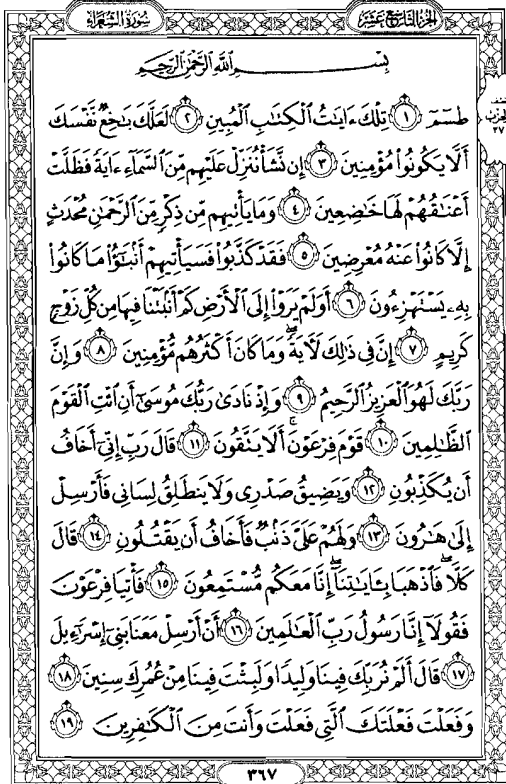 الجزء التاسع عشر
سورة الشعراء
بِسْمِ اللَّهِ الرَّحْمَٰنِ الرَّحِيمِ
طسٓمٓ ١ تِلْكَ ءَايَٰتُ ٱلْكِتَٰبِ ٱلْمُبِينِ ٢ لَعَلَّكَ بَٰخِعٌ نَّفْسَكَ
أَلَّا يَكُونُوا۟ مُؤْمِنِينَ ٣ إِن نَّشَأْ نُنَزِّلْ عَلَيْهِم مِّنَ ٱلسَّمَآءِ ءَايَةً فَظَلَّتْ
أَعْنَٰقُهُمْ لَهَا خَٰضِعِينَ ٤ وَمَا يَأْتِيهِم مِّن ذِكْرٍ مِّنَ ٱلرَّحْمَٰنِ مُحْدَثٍ
إِلَّا كَانُوا۟ عَنْهُ مُعْرِضِينَ ٥ فَقَدْ كَذَّبُوا۟ فَسَيَأْتِيهِمْ أَنۢبَٰٓؤُا۟ مَا كَانُوا۟
بِهِۦ يَسْتَهْزِءُونَ ٦ أَوَلَمْ يَرَوْا۟ إِلَى ٱلْأَرْضِ كَمْ أَنۢبَتْنَا فِيهَا مِن كُلِّ زَوْجٍ
كَرِيمٍ ٧ إِنَّ فِى ذَٰلِكَ لَءَايَةً ۖ وَمَا كَانَ أَكْثَرُهُم مُّؤْمِنِينَ ٨ وَإِنَّ
رَبَّكَ لَهُوَ ٱلْعَزِيزُ ٱلرَّحِيمُ ٩ وَإِذْ نَادَىٰ رَبُّكَ مُوسَىٰٓ أَنِ ٱئْتِ ٱلْقَوْمَ
ٱلظَّٰلِمِينَ ١٠ قَوْمَ فِرْعَوْنَ ۚ أَلَا يَتَّقُونَ ١١ قَالَ رَبِّ إِنِّىٓ أَخَافُ
أَن يُكَذِّبُونِ ١٢ وَيَضِيقُ صَدْرِى وَلَا يَنطَلِقُ لِسَانِى فَأَرْسِلْ
إِلَىٰ هَٰرُونَ ١٣ وَلَهُمْ عَلَىَّ ذَنۢبٌ فَأَخَافُ أَن يَقْتُلُونِ ١٤ قَالَ
كَلَّا ۖ فَٱذْهَبَا بِـَٔايَٰتِنَآ ۖ إِنَّا مَعَكُم مُّسْتَمِعُونَ ١٥ فَأْتِيَا فِرْعَوْنَ
فَقُولَآ إِنَّا رَسُولُ رَبِّ ٱلْعَٰلَمِينَ ١٦ أَنْ أَرْسِلْ مَعَنَا بَنِىٓ إِسْرَٰٓءِيلَ
١٧ قَالَ أَلَمْ نُرَبِّكَ فِينَا وَلِيدًا وَلَبِثْتَ فِينَا مِنْ عُمُرِكَ سِنِينَ ١٨
وَفَعَلْتَ فَعْلَتَكَ ٱلَّتِى فَعَلْتَ وَأَنتَ مِنَ ٱلْكَٰفِرِينَ ١٩
٣٦٧